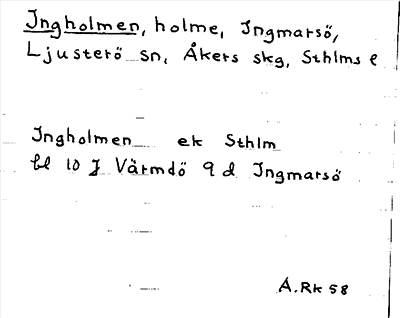 Ingholmen, holme, Ingmarsö,
Ljusterö sn, Åkers skg, Sthlms l
Ingholmen ek Sthlm
bl 10 J Värmdö 9 d Ingmarsö
A.Rk 58